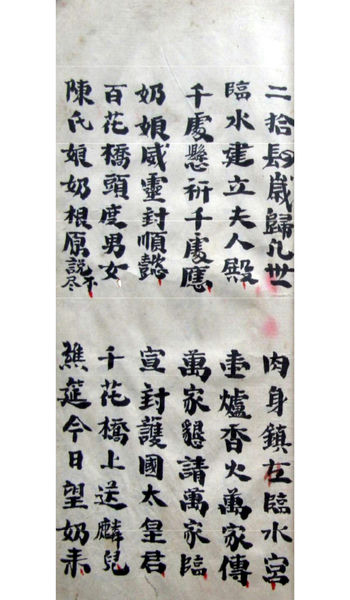 二拾肆歲歸凡世
肉身鎮在臨水宮
臨水建立夫人殿
圭爐香火萬家傳
千處懸祈千處應
萬家懇請萬家臨
奶娘威靈封順懿
宣封護國太皇君
百花橋頭度男女
千花橋上送麟兒
陳氏娘奶根原說不尽
筵今日望奶来